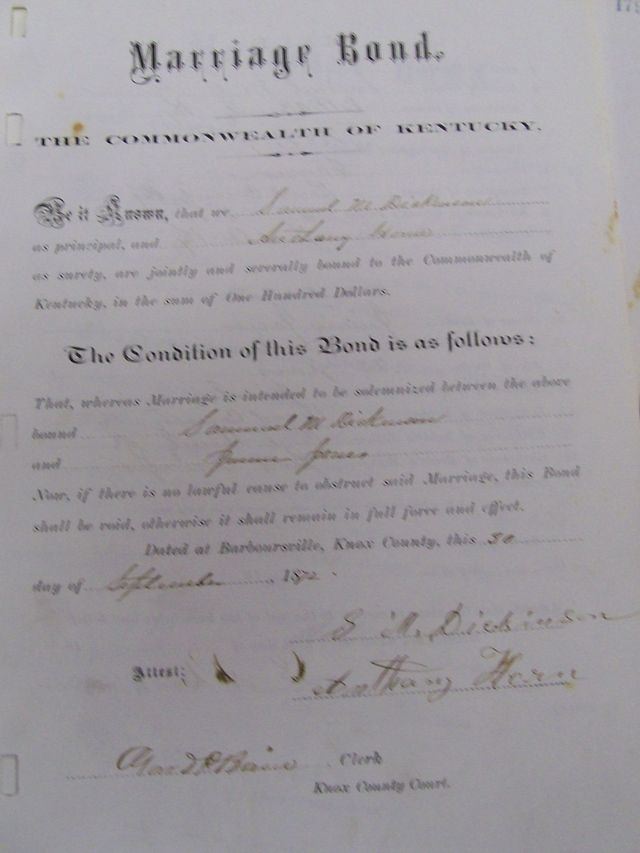 179
Marriage Bond.
THE COMMONWEALTH OF KENTUCKY.
Be it Known, that we Samuel M Dickinson
as principal, and Anthany Horn
as surety, are jointly and severally bound to the Commonwealth of
Kentucky, in the sum of One Hundred Dollars.
The Condition of this Bond is as follows:
That, whereas Marriage is intended to be solemnized between the above
bound Samuel M Dickinson
and Jones
Now, if there is no lawful cause to obstruct said Marriage, this Bond
shall be void, otherwise it shall remain in full force and effect.
Dated at Barboursville, Knox County, this 30
day of September, 1872.
S M. Dickinson
Attest: Anthany Horn
Clerk
Knox County Court.